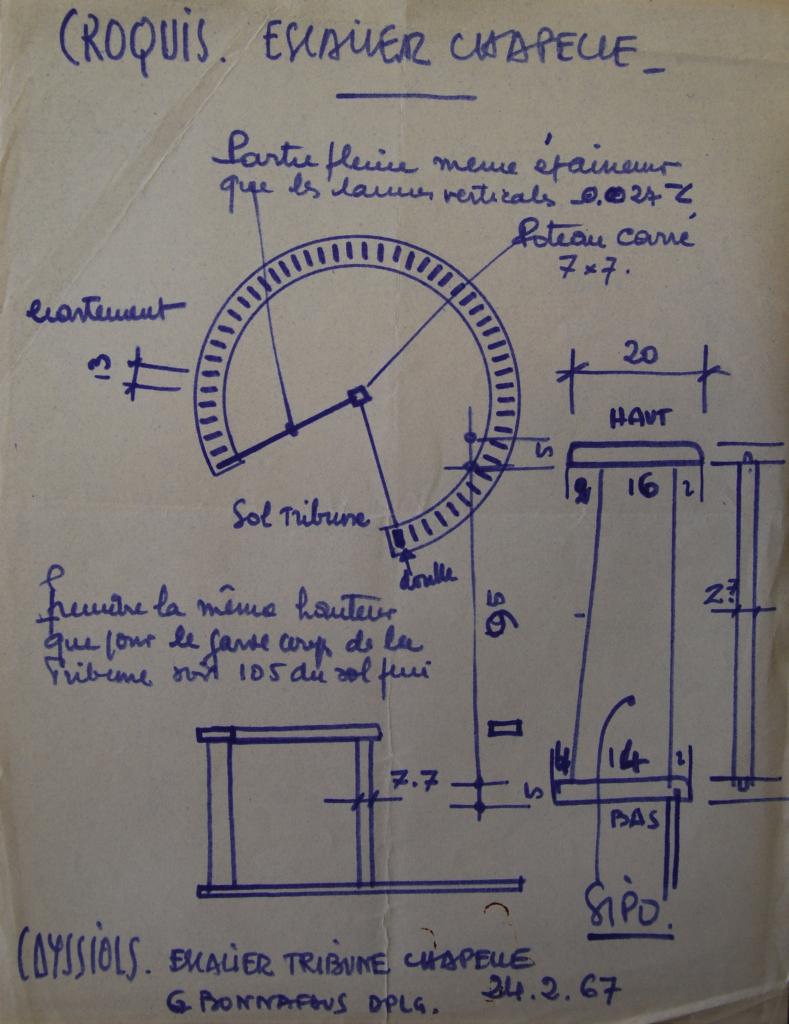 CROQUIS. ESCALIER CHAPELLE_
Partie pleine meme épaisseur
que les lames verticales 0.027
Poteau carré
7×7.
écartement
13
20
HAUT
5
2 16 2
Sol Tribune
double
95
27
Prendre la même hauteur
que pour le garde corps de la
Tribune soit 105 du sol fini
7.7
4 14 2
5
BAS
SIPO.
ESCALIER TRIBUNE CHAPELLE
G BONNAFOUS DPLG. 24.2.67